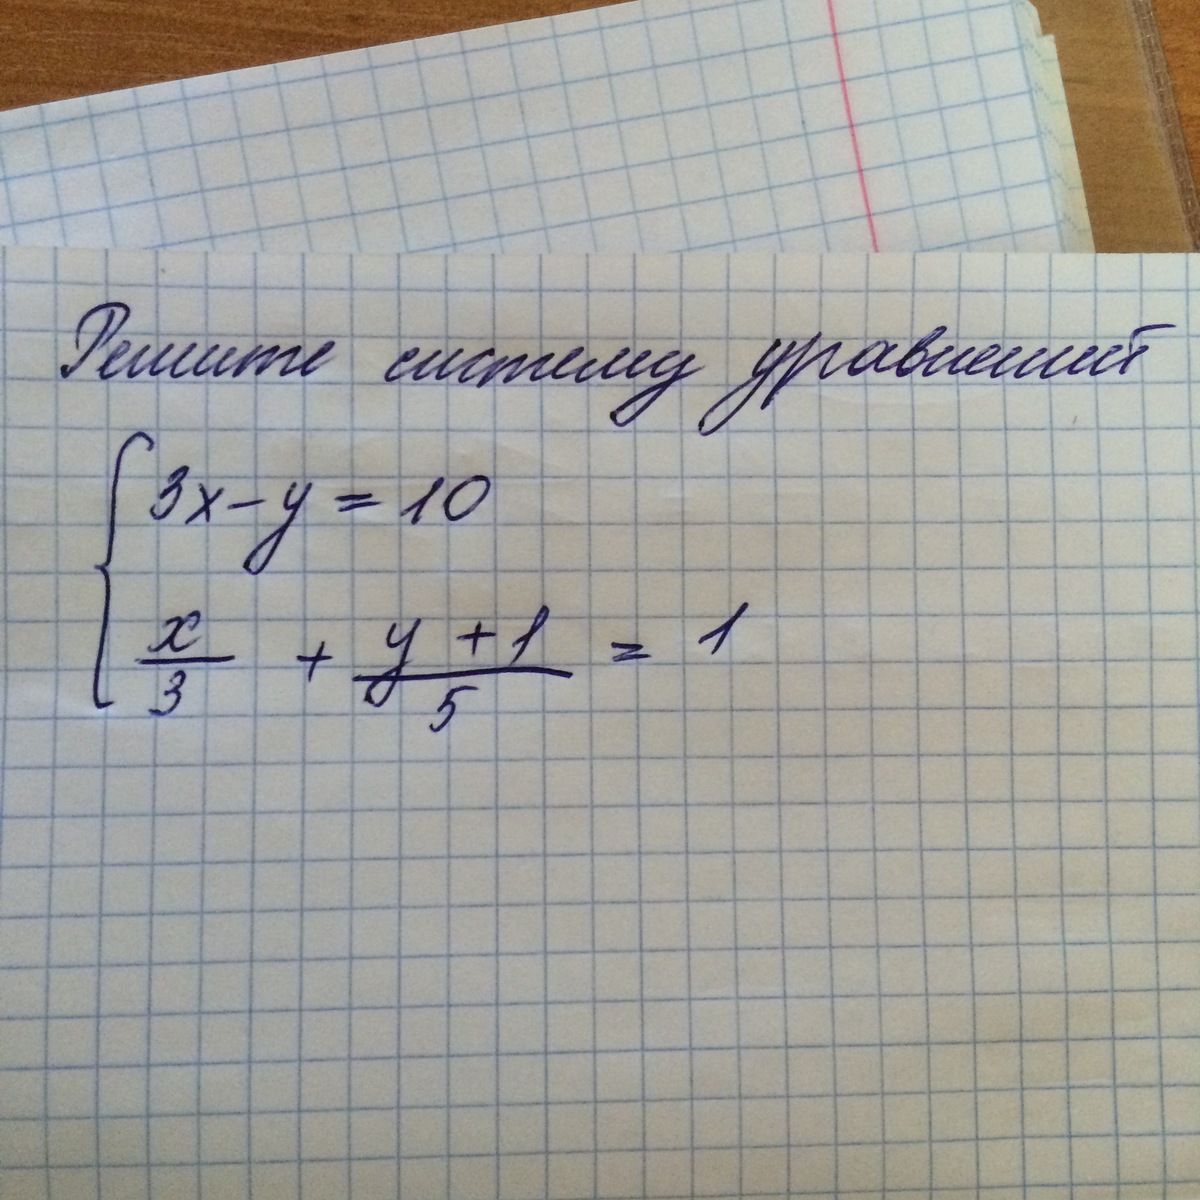 Решите систему уравнений
3x - y = 10
x/3 + (y + 1)/5 = 1